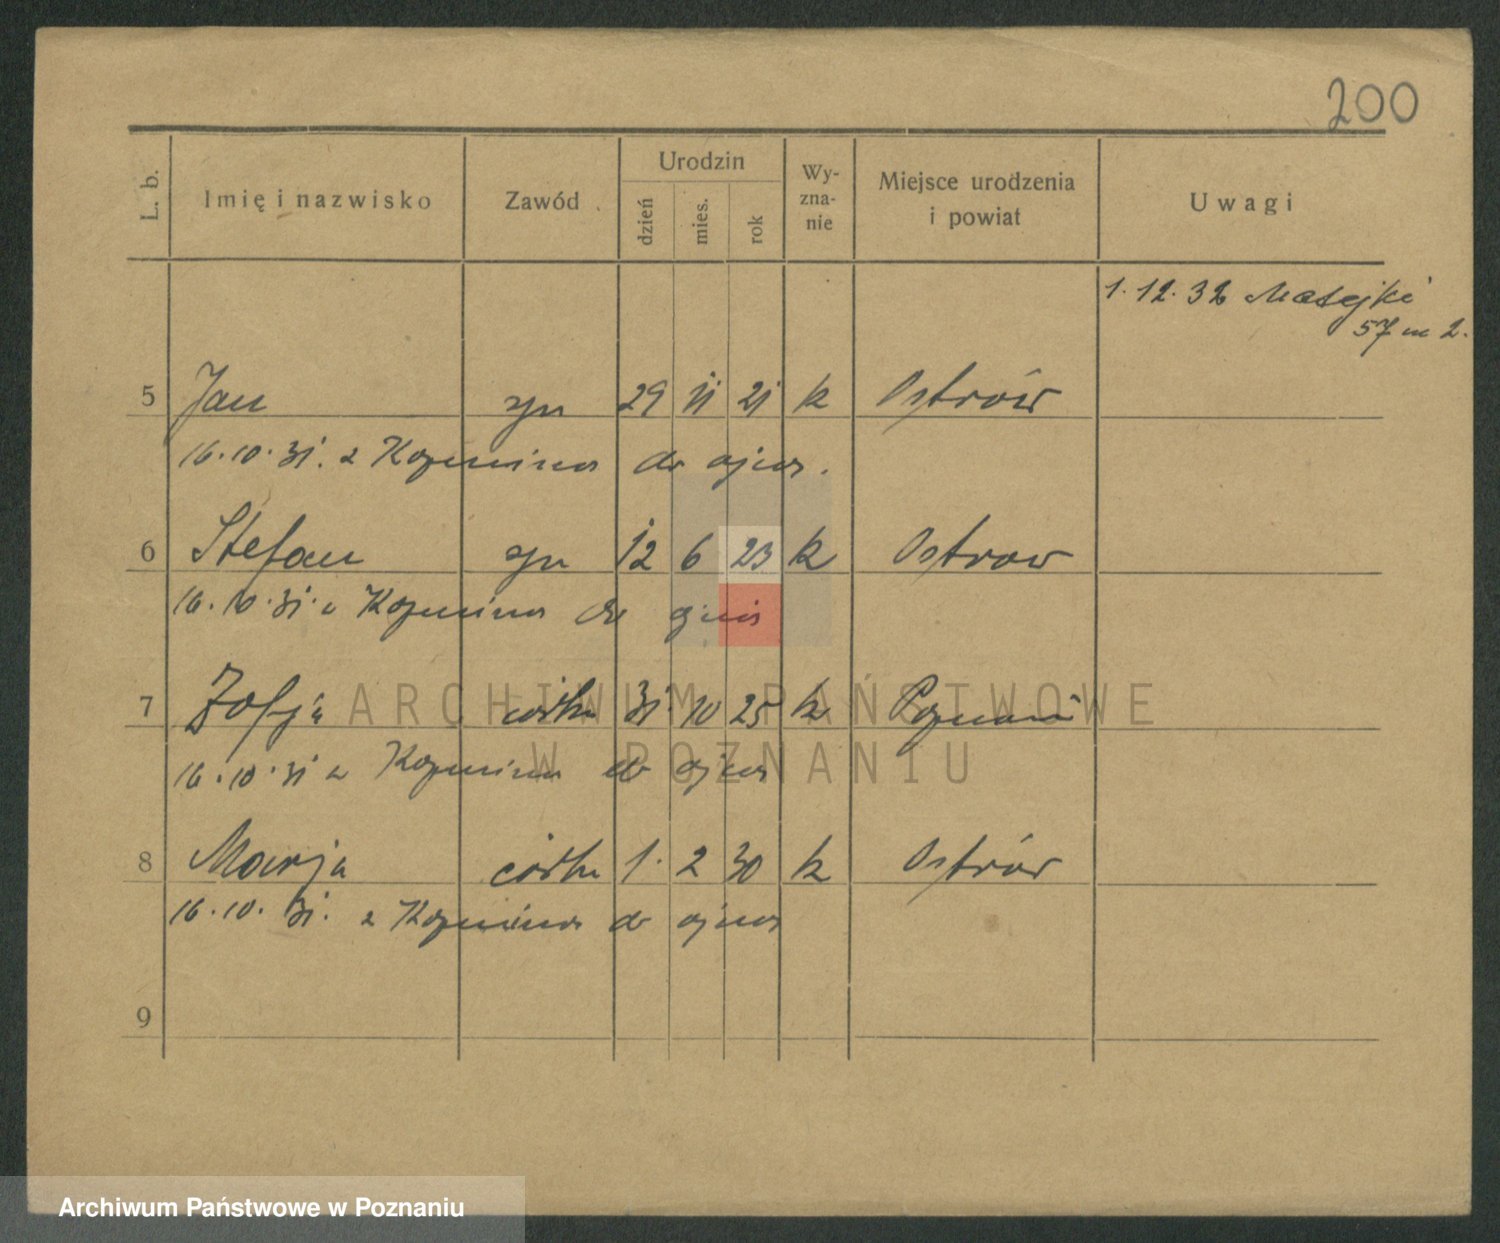 200
L. b. Imię i nazwisko Zawód Urodzin dzień mies. rok Wy-zna-nie Miejsce urodzenia i powiat Uwagi
1.12.32 Matejki
57 m 2.
5 Jan syn 29 11 21 k Ostrów
16.10.31. z Kozmina do ojca.
6 Stefan syn 12 6 23 k Ostrow
16.10.31. z Kozmina do ojca
7 Zofja córka 31. 10 25 k Poznań
16.10.31 z Kozmina do ojca
8 Marja córka 1. 2 30 k Ostrów
16.10.31. z Kozmina do ojca
9
ARCHIWUM PAŃSTWOWE
W POZNANIU
Archiwum Państwowe w Poznaniu